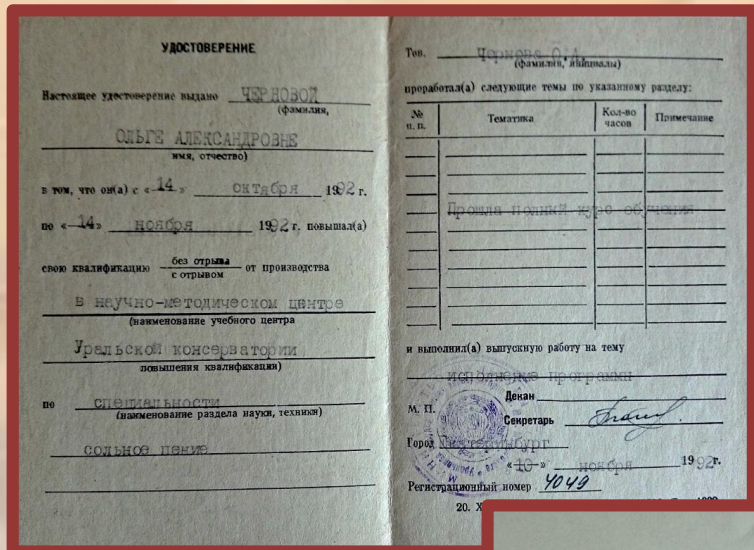 УДОСТОВЕРЕНИЕ
Настоящее удостоверение выдано ЧЕРНОВОЙ
(фамилия,
ОЛЬГЕ АЛЕКСАНДРОВНЕ
имя, отчество)
в том, что он(а) с «14» октября 1992 г.
по «14» ноября 1992 г. повышал(а)
свою квалификацию без отрыва от производства
с отрывом
в научно-методическом центре
(наименование учебного центра
Уральской консерватории
повышения квалификации)
по специальности
(наименование раздела науки, техники)
сольное пение
Тов. Чернова О.А.
(фамилия, инициалы)
проработал(а) следующие темы по указанному разделу:
№ п. п. Тематика Кол-во часов Примечание
Прошла полный курс обучения
и выполнил(а) выпускную работу на тему
исполнение программы
Декан
М. П.
Секретарь
Город Екатеринбург
«10» ноября 1992г.
Регистрационный номер 4049
20. Х